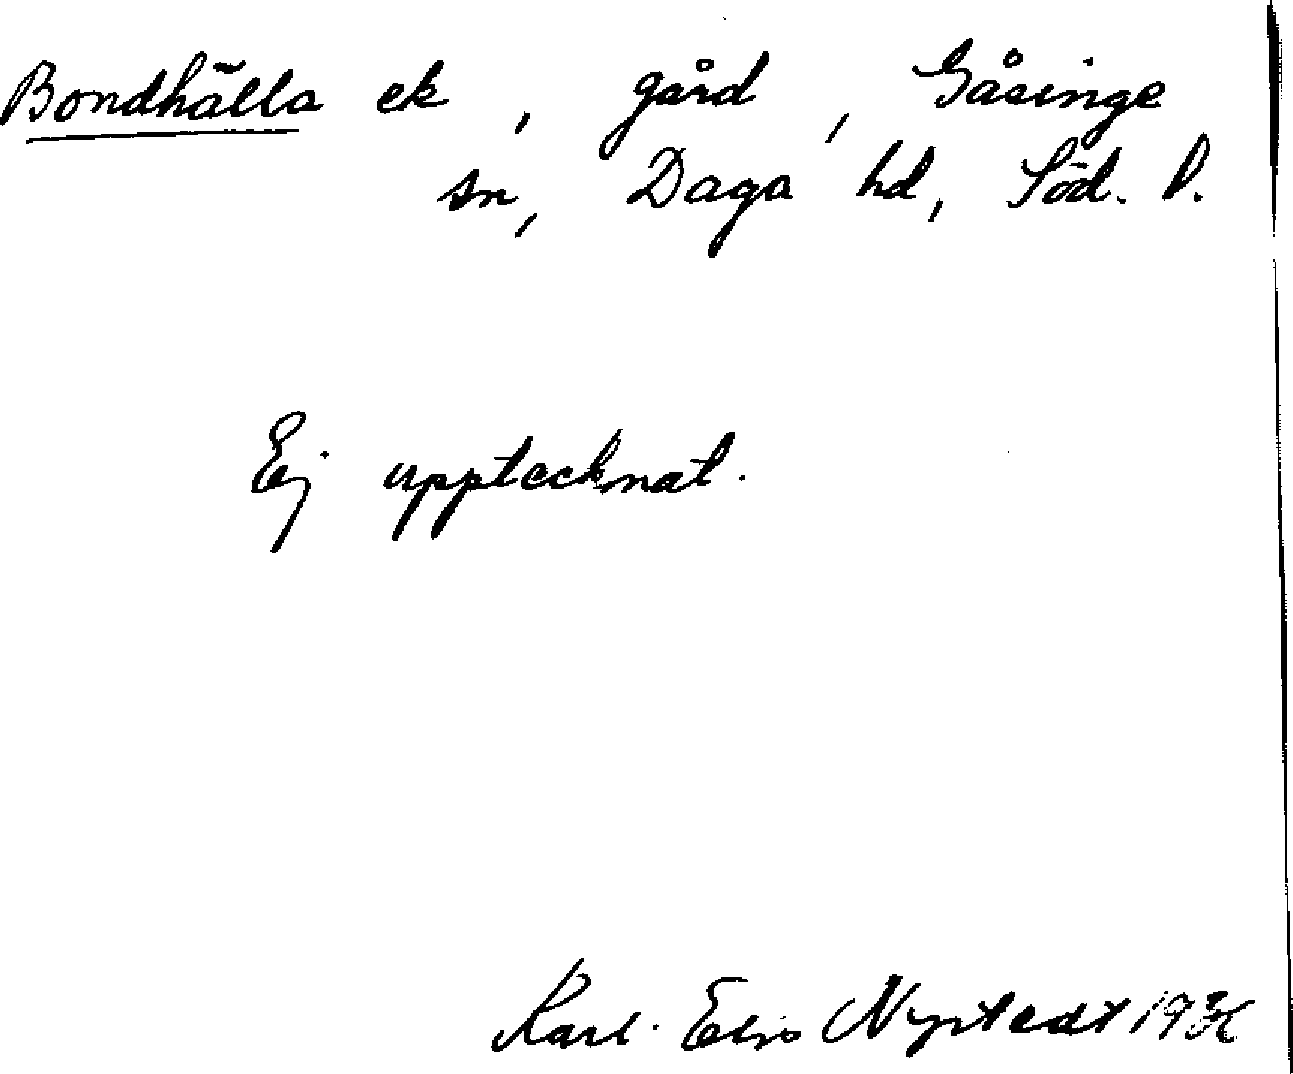 Bondhälla ek , gård , Gåsinge
sn, Daga hd, Söd. l.
Ej upptecknat.
Karl. Nystedt